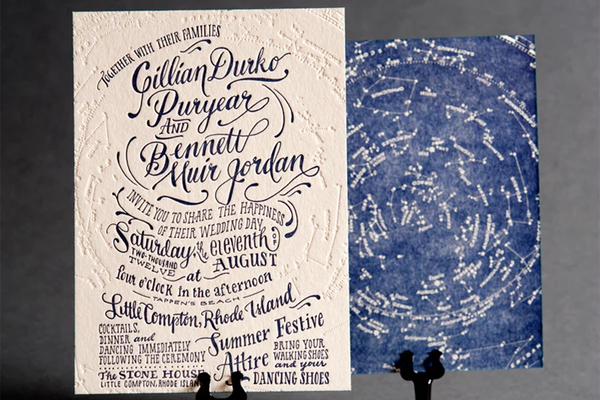 TOGETHER WITH THEIR FAMILIES
Gillian Durko
Puryear
AND
Bennett
Muir Jordan
INVITE YOU TO SHARE THE HAPPINESS
OF THEIR WEDDING DAY
Saturday, the eleventh OF
TWO-THOUSAND
TWELVE at AUGUST
four o'clock in the afternoon
TAPPEN'S BEACH
Little Compton, Rhode Island
COCKTAILS,
DINNER and
DANCING IMMEDIATELY
FOLLOWING THE CEREMONY
The STONE HOUSE
LITTLE COMPTON, RHODE ISLAND
Summer Festive
Attire
BRING YOUR
WALKING SHOES
and your
DANCING SHOES